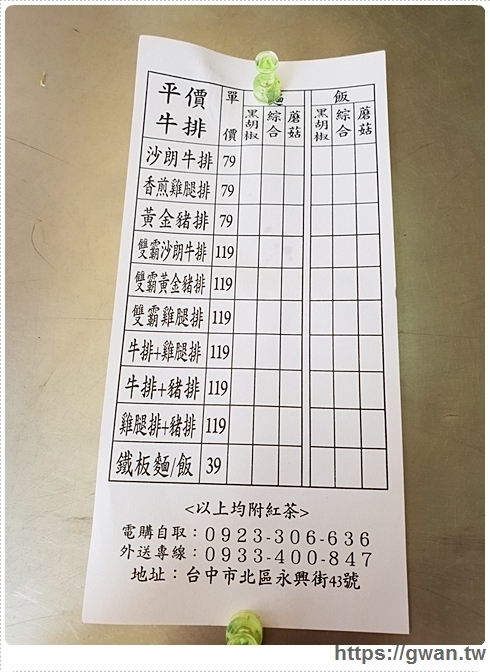 平價牛排 單價 麵 飯
黑胡椒 綜合 蘑菇 黑胡椒 綜合 蘑菇
沙朗牛排 79
香煎雞腿排 79
黃金豬排 79
雙霸沙朗牛排 119
雙霸黃金豬排 119
雙霸雞腿排 119
牛排+雞腿排 119
牛排+豬排 119
雞腿排+豬排 119
鐵板麵/飯 39
<以上均附紅茶>
電購自取：0923-306-636
外送專線：0933-400-847
地址：台中市北區永興街43號
https://gwan.tw